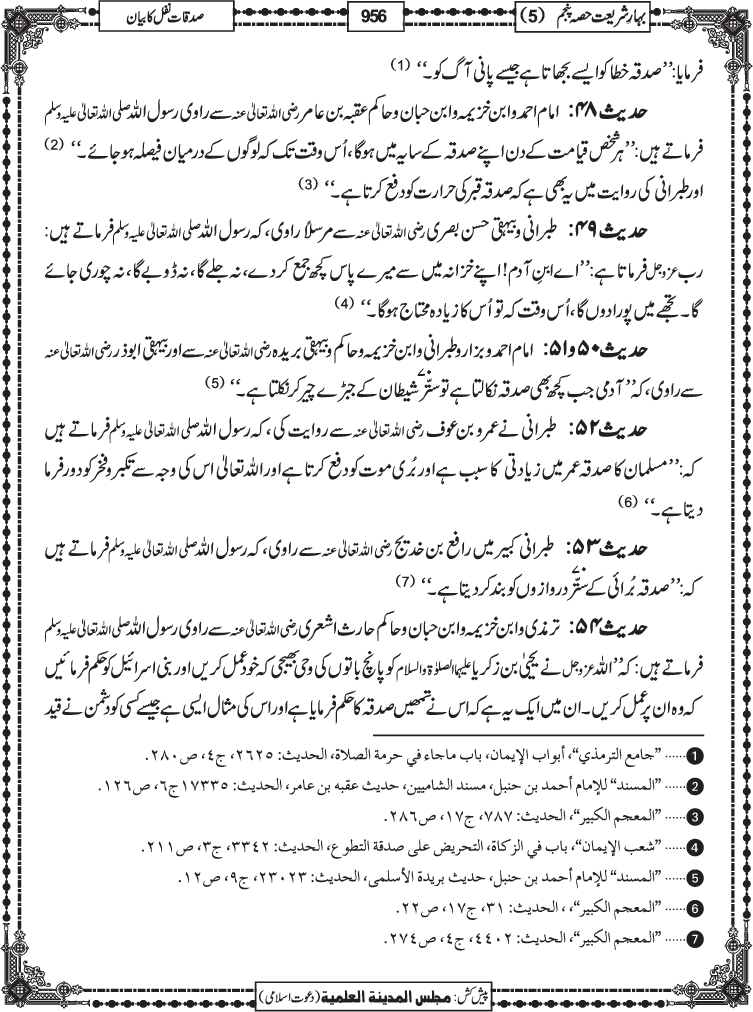 بہارِ شریعت حصہ پنجم (5)
956
صدقات نفل کا بیان
فرمایا: ’’صدقہ خطا کو ایسے بجھاتا ہے جیسے پانی آگ کو۔‘‘ (1)
حدیث ۴۸: امام احمد و ابن خزیمہ و ابن حبان و حاکم عقبہ بن عامر رضی اللہ تعالیٰ عنہ سے راوی رسول اللہ صلی اللہ تعالیٰ علیہ وسلم
فرماتے ہیں: ’’ہر شخص قیامت کے دن اپنے صدقہ کے سایہ میں ہوگا، اُس وقت تک کہ لوگوں کے درمیان فیصلہ ہو جائے۔‘‘ (2)
اور طبرانی کی روایت میں یہ بھی ہے کہ صدقہ قبر کی حرارت کو دفع کرتا ہے۔‘‘ (3)
حدیث ۴۹: طبرانی و بیہقی حسن بصری رضی اللہ تعالیٰ عنہ سے مرسلاً راوی، کہ رسول اللہ صلی اللہ تعالیٰ علیہ وسلم فرماتے ہیں:
رب عزوجل فرماتا ہے: ’’اے ابنِ آدم! اپنے خزانہ میں سے میرے پاس کچھ جمع کر دے، نہ جلے گا، نہ ڈوبے گا، نہ چوری جائے
گا۔ تجھے میں پورا دوں گا، اُس وقت کہ تو اُس کا زیادہ محتاج ہوگا۔‘‘ (4)
حدیث ۵۰ و ۵۱: امام احمد و بزار و طبرانی و ابن خزیمہ و حاکم و بیہقی بریدہ رضی اللہ تعالیٰ عنہ سے اور بیہقی ابوذر رضی اللہ تعالیٰ عنہ
سے راوی، کہ ’’آدمی جب کچھ بھی صدقہ نکالتا ہے تو ستّر۷۰ شیطان کے جبڑے چیر کر نکلتا ہے۔‘‘ (5)
حدیث ۵۲: طبرانی نے عمرو بن عوف رضی اللہ تعالیٰ عنہ سے روایت کی، کہ رسول اللہ صلی اللہ تعالیٰ علیہ وسلم فرماتے ہیں
کہ: ’’مسلمان کا صدقہ عمر میں زیادتی کا سبب ہے اور بُری موت کو دفع کرتا ہے اور اللہ تعالیٰ اس کی وجہ سے تکبر و فخر کو دور فرما
دیتا ہے۔‘‘ (6)
حدیث ۵۳: طبرانی کبیر میں رافع بن خدیج رضی اللہ تعالیٰ عنہ سے راوی، کہ رسول اللہ صلی اللہ تعالیٰ علیہ وسلم فرماتے ہیں
کہ: ’’صدقہ بُرائی کے ستّر۷۰ دروازوں کو بند کر دیتا ہے۔‘‘ (7)
حدیث ۵۴: ترمذی و ابن خزیمہ و ابن حبان و حاکم حارث اشعری رضی اللہ تعالیٰ عنہ سے راوی رسول اللہ صلی اللہ تعالیٰ علیہ وسلم
فرماتے ہیں: کہ ’’اللہ عزوجل نے یحییٰ بن زکریا علیہما الصلوٰۃ والسلام کو پانچ باتوں کی وحی بھیجی کہ خود عمل کریں اور بنی اسرائیل کو حکم فرمائیں
کہ وہ ان پر عمل کریں۔ ان میں ایک یہ ہے کہ اس نے تمھیں صدقہ کا حکم فرمایا ہے اور اس کی مثال ایسی ہے جیسے کسی کو دشمن نے قید
1 ...... ”جامع الترمذي“، أبواب الإيمان، باب ماجاء في حرمة الصلاة، الحديث: ٢٦٢٥، ج٤، ص٢٨٠.
2 ...... ”المسند“ للإمام أحمد بن حنبل، مسند الشاميين، حديث عقبه بن عامر، الحديث: ١٧٣٣٥ ج٦، ص١٢٦.
3 ...... ”المعجم الكبير“، الحديث: ٧٨٧، ج١٧، ص٢٨٦.
4 ...... ”شعب الإيمان“، باب في الزكاة، التحريض على صدقة التطوع، الحديث: ٣٣٤٢، ج٣، ص٢١١.
5 ...... ”المسند“ للإمام أحمد بن حنبل، حديث بريدة الأسلمى، الحديث: ٢٣٠٢٣، ج٩، ص١٢.
6 ...... ”المعجم الكبير“، ، الحديث: ٣١، ج١٧، ص٢٢.
7 ...... ”المعجم الكبير“، الحديث: ٤٤٠٢، ج٤، ص٢٧٤.
پیش کش: مجلس المدینة العلمیة (دعوت اسلامی)